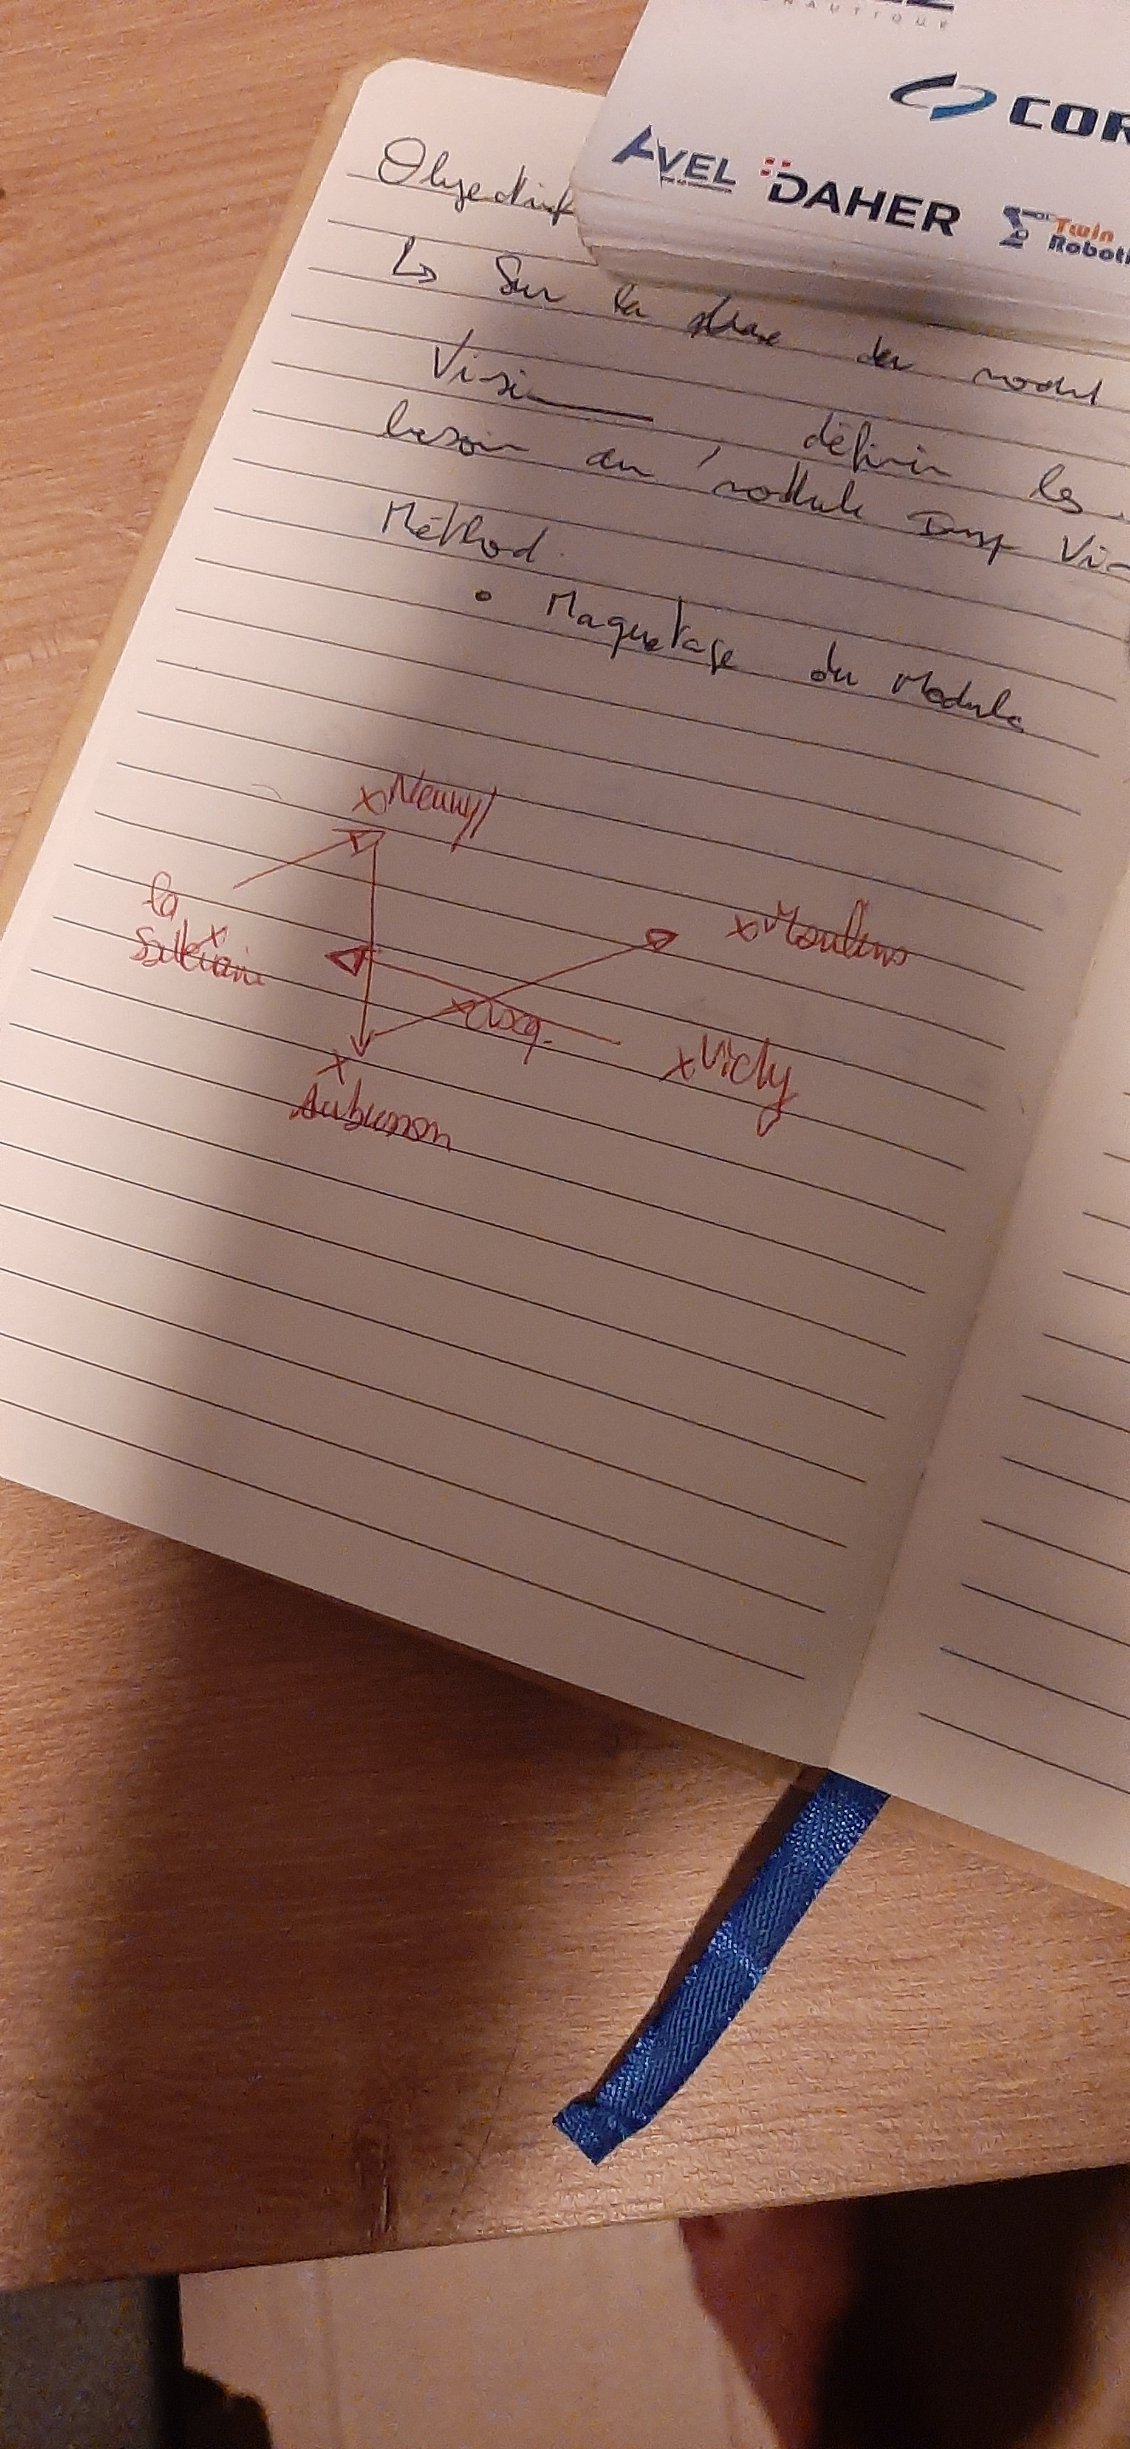 NAUTIQUE
COR
AVEL DAHER Twin
Roboti
Objectif
↳ Sur la phase du modul
Visi , définir les
besoin du module Vi
Méthod.
• Maquetage du Module
x Neuvy
la
x
x Moulins
x Vichy
x
Aubusson